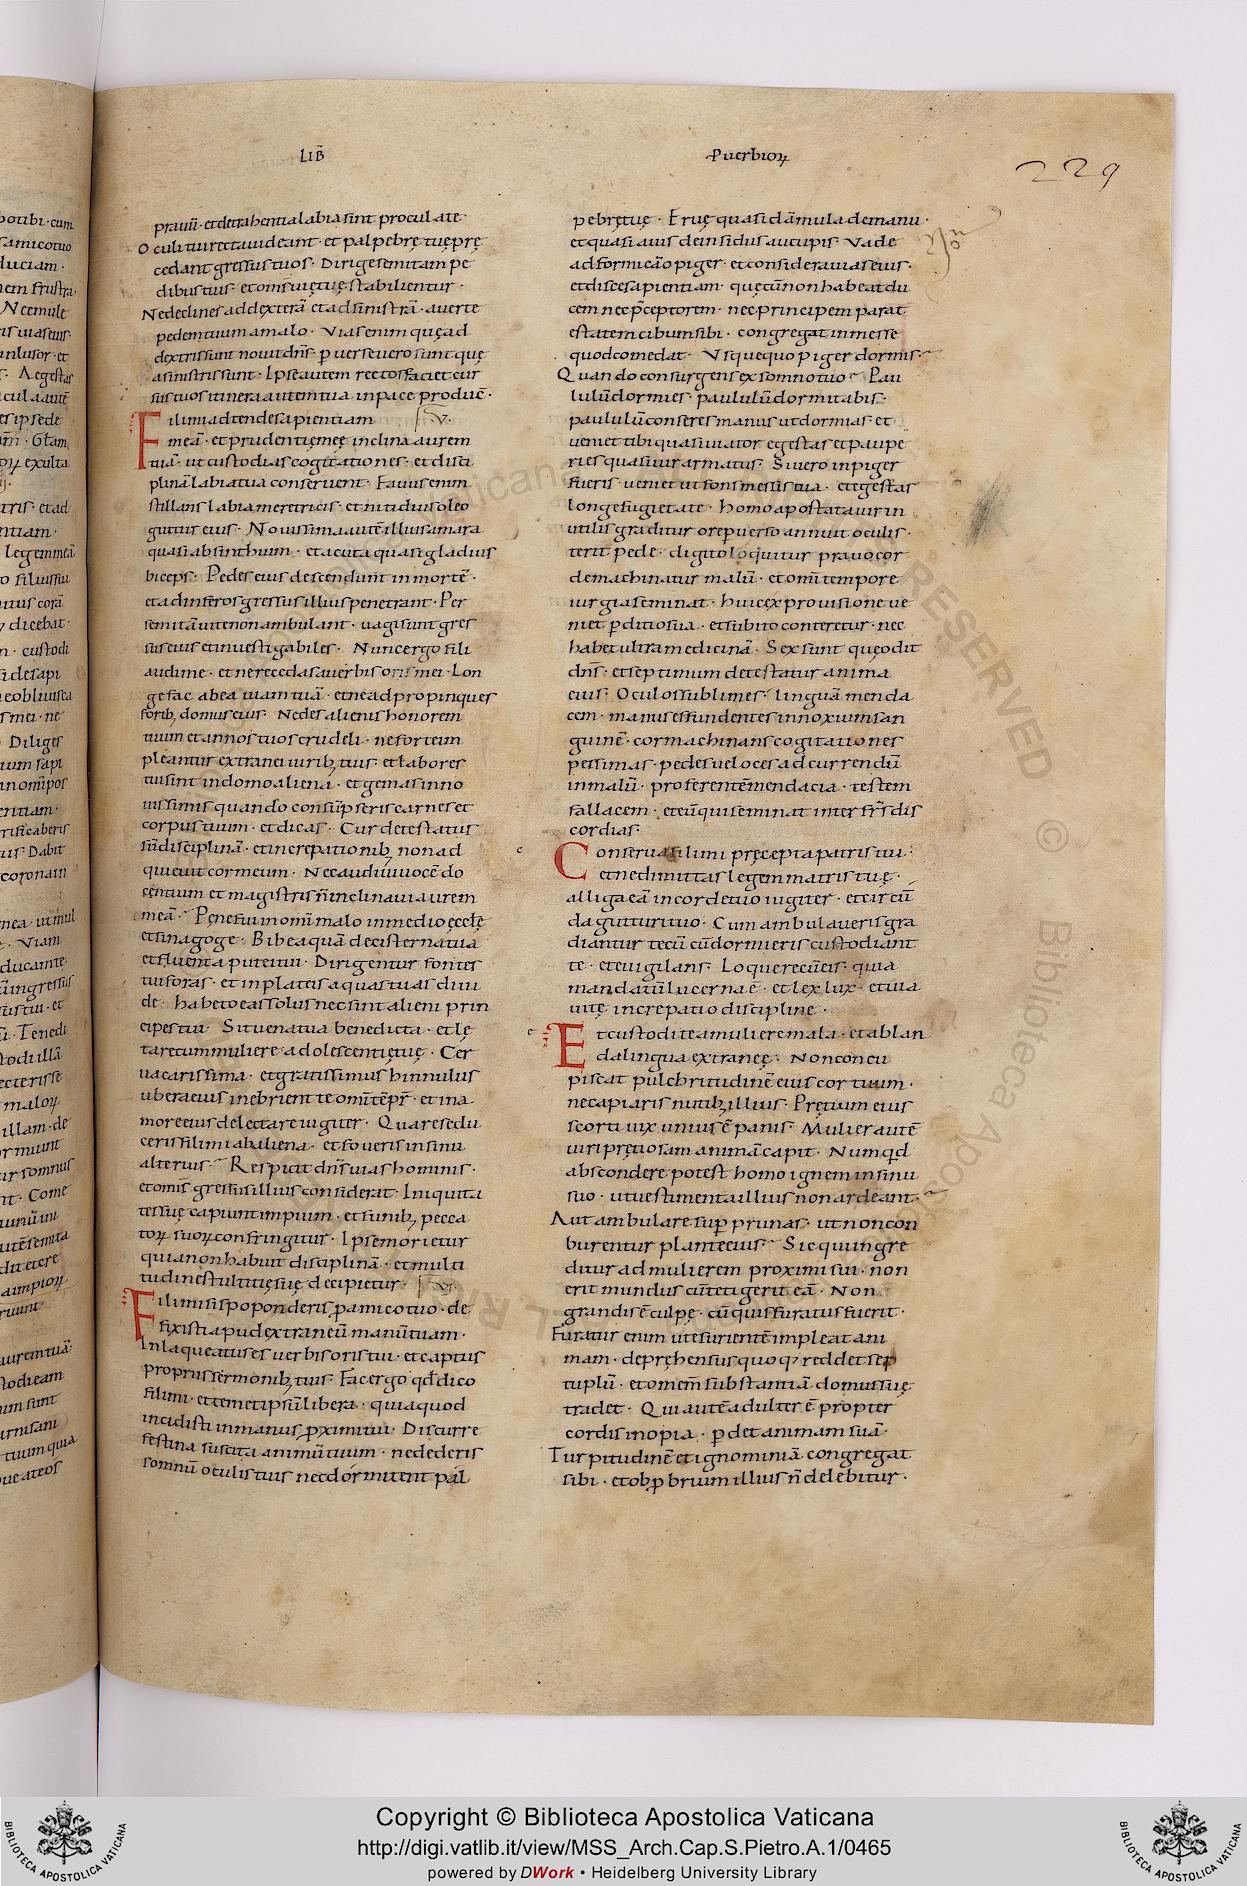 LIB̄
Puerbioꝝ
229
prauū · et detrahentia labia sint procul a te ·
Oculi tui recta uideant · et palpebrę tuę prę
cedant gressus tuos · Dirige semitam pe
dibus tuis · et om̄s uię tuę stabilientur ·
Ne declines ad dexterā et ad sinistrā · auerte
pedem tuum a malo · Vias enim quę a d
dextris sunt nouit dn̄s · ꝑuerse uero sunt quę
a sinistris sunt · Ipse autem rectos faciet cur
sus tuos itinera autem tua in pace producē ·
Fili mi adtende sapientiam v.
meā · et prudentię meę inclina aurem
tuā · ut custodias cogitationes · et disci
plinā labia tua conseruent · Fauus enim
stillans labia meretricis · et nitidius oleo
guttur eius · Nouissima autē illius amara
quasi absinthium · et acuta quasi gladius
biceps · Pedes eius descendunt in mortē ·
et ad inferos gressus illius penetrant · Per
semitā uite non ambulant · uagi sunt gres
sus eius et inuestigabiles · Nunc ergo fili
audi me · et ne recedas a uerbis oris mei · Lon
ge fac ab ea uiam tuā · et ne ad propinques
forib; domus eius · Ne des alienis honorem
tuum et annos tuos crudeli · ne forte im
pleantur extranei uirib; tuis · et labores
tui sint in domo aliena · et gemas in no
uissimis quando consūpseris carnes et
corpus tuum · et dicas · Cur detestatus
sū disciplinā · et increpationib; non ad
quieuit cor meum · Nec audiui uocē do
centium et magistris n̄ inclinaui aurem
meā · Pene fui in omni malo in medio ęcclę
et sinagoge · Bibe aquā de cisterna tua
et fluenta putei tui · Dirigentur fontes
tui foras · et in plateis aquas tuas diui
de · habeto eas solus nec sint alieni prin
cipes tui · Sit uena tua benedicta · et lę
tare cum muliere adolescentię tuę · Cer
ua carissima · et gratissimus hinnulus
ubera eius inebrient te omī tēpr̄ · et in a
more eius delectare iugiter · Quare sedu
ceris fili mi ab aliena · et foueris in sinu
alterius · Respicit dn̄s uias hominis ·
et omīs gressus illius considerat · Iniquita
tes suę capiunt impium · et funib; pecca
toꝝ suoꝝ confringitur · Ipse morietur
quia non habuit disciplinā · et multi
tudine stultitię suę decipietur · vi.
Fili mi si spoponderis ꝓ amico tuo · de
fixisti apud extraneū manū tuam ·
Inlaqueatus es uerbis oris tui · et captus
propriis sermonib; tuis · Fac ergo qd̄ dico
fili mi · et temetipsū libera · quia quod
incidisti in manus ꝓximi tui · Discurre
festina suscita amicū tuum · ne dederis
somnū oculis tuis nec dormitent pal
pebrę tuę · Eruę quasi dāmula de manu ·
et quasi auis de insidiis aucupis · Vade
ad formicā o piger · et considera uias eius ·
et disce sapientiam · quę cū non habeat du
cem nec pͬceptorem · nec principem parat
estate cibum sibi · congregat in messe
quod comedat · Vsquequo piger dormis ·
Quando consurgens ex somno tuo · Pau
lulū dormies · paululū dormitabis ·
paululū conseres manus ut dormias · et
ueniet tibi quasi uiator egestas et paupe
ries quasi uir armatus · Si uero inpiger
fueris · ueniet ut fons messis tua · et egestas
longe fugiet a te · homo apostata uir in
utilis graditur ore ꝑuerso annuit oculis ·
terit pede · digito loquitur prauo cor
de machinatur malū · et omī tempore
iurgia seminat · huic ex prouisione ue
niet ꝑditio sua · et subito conteretur · nec
habet ultra medicinā · Sex sunt quę odit
dn̄s · et septimum detestatur anima
eius · Oculos sublimes · linguā menda
cem · manus effundentes innoxium san
guinē · cor machinans cogitationes
pessimas · pedes ueloces ad currendū
in malū · proferentē mendacia · testem
fallacem · et eū qui seminat inter fr̄s dis
cordias ·
Conserua fili mi pręcepta patris tui ·
et ne dimittas legem matris tuę ·
alliga eā in corde tuo iugiter · et circū
da gutturi tuo · Cum ambulaueris gra
diantur tecū cū dormieris custodiant
te · et euigilans · Loquere cū eis · quia
mandatū lucerna ē · et lex lux · et uia
uitę increpatio discipline ·
Et custodi te a muliere mala · et a blan
da lingua extraneę · Non concu
piscat pulchritudinē eius cor tuum ·
ne capiaris nutib; illius · Pretium eius
scorti uix unius ē panis · Mulier autē
uiri prętiosam animā capit · Numqd
abscondere potest homo ignem in sinu
suo · ut uestimenta illius non ardeant ·
Aut ambulare suꝑ prunas · ut non con
burentur plante eius · Sic qui ingre
ditur ad mulierem proximi sui · non
erit mundus cū tetigerit eā · Non
grandis ē culpę · cū quis furatus fuerit ·
Furatur enim ut esurientē impleat ani
mam · deprehensus quoq; reddet sep
tuplū · et omem̄ substantiā domus suę
tradet · Qui autē adulter ē propter
cordis inopia · ꝑdet animam suā ·
Turpitudinē et ignominiā congregat
sibi · et obꝓbrium illius n̄ delebitur ·
Copyright © Biblioteca Apostolica Vaticana
http://digi.vatlib.it/view/MSS_Arch.Cap.S.Pietro.A.1/0465
powered by DWork • Heidelberg University Library